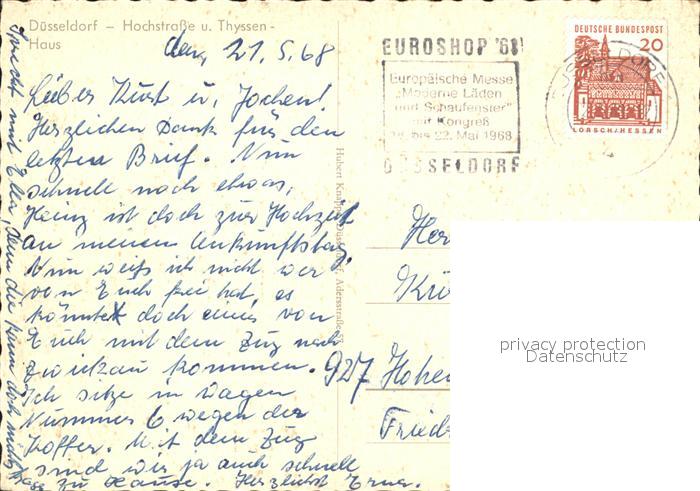 Düsseldorf – Hochstraße u. Thyssen-
Haus
den, 21. 5. 68
Lieber Kurt u. Jochen!
Herzlichen Dank für den
letzten Brief. Nun
schnell noch etwas,
Heinz ist doch zur Hochzeit
an meinem Ankunftstag.
Nun weiß ich nicht wer
von Euch frei hat, es
könnte doch eines von
Euch mit dem Zug nach
Zwickau kommen.
Ich sitze im Wagen
Nummer 6 wegen der
Koffer. Mit dem Zug
sind wir ja auch schnell
zu Hause. Herzlichst Erna.
Sprecht mit Eller, denn die kann doch nicht
Hubert Knapp, Düsseldorf, Adersstraße
EUROSHOP '68
Europäische Messe
„Moderne Läden
und Schaufenster"
mit Kongreß
bis 22. Mai 1968
DÜSSELDORF
DEUTSCHE BUNDESPOST
20
LORSCH/HESSEN
DÜSSELDORF
Her
927 Hohen
Friedr
privacy protection
Datenschutz